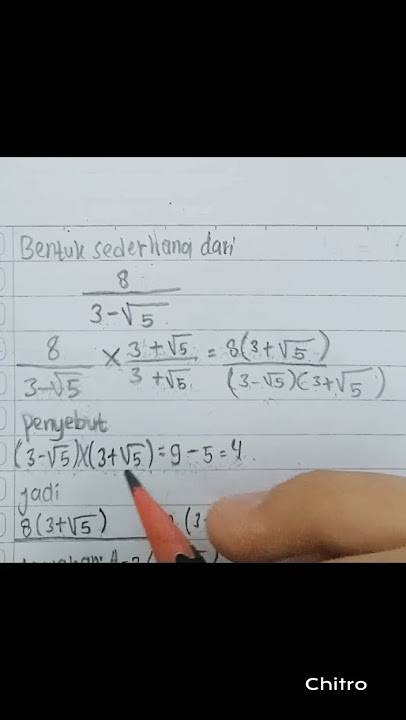 Bentuk sederhana dari
8
3-√5
8/3-√5 × 3+√5/3+√5 = 8(3+√5)/(3-√5)(3+√5)
penyebut
(3-√5)×(3+√5)=9-5=4.
jadi
8(3+√5) (3
Chitro